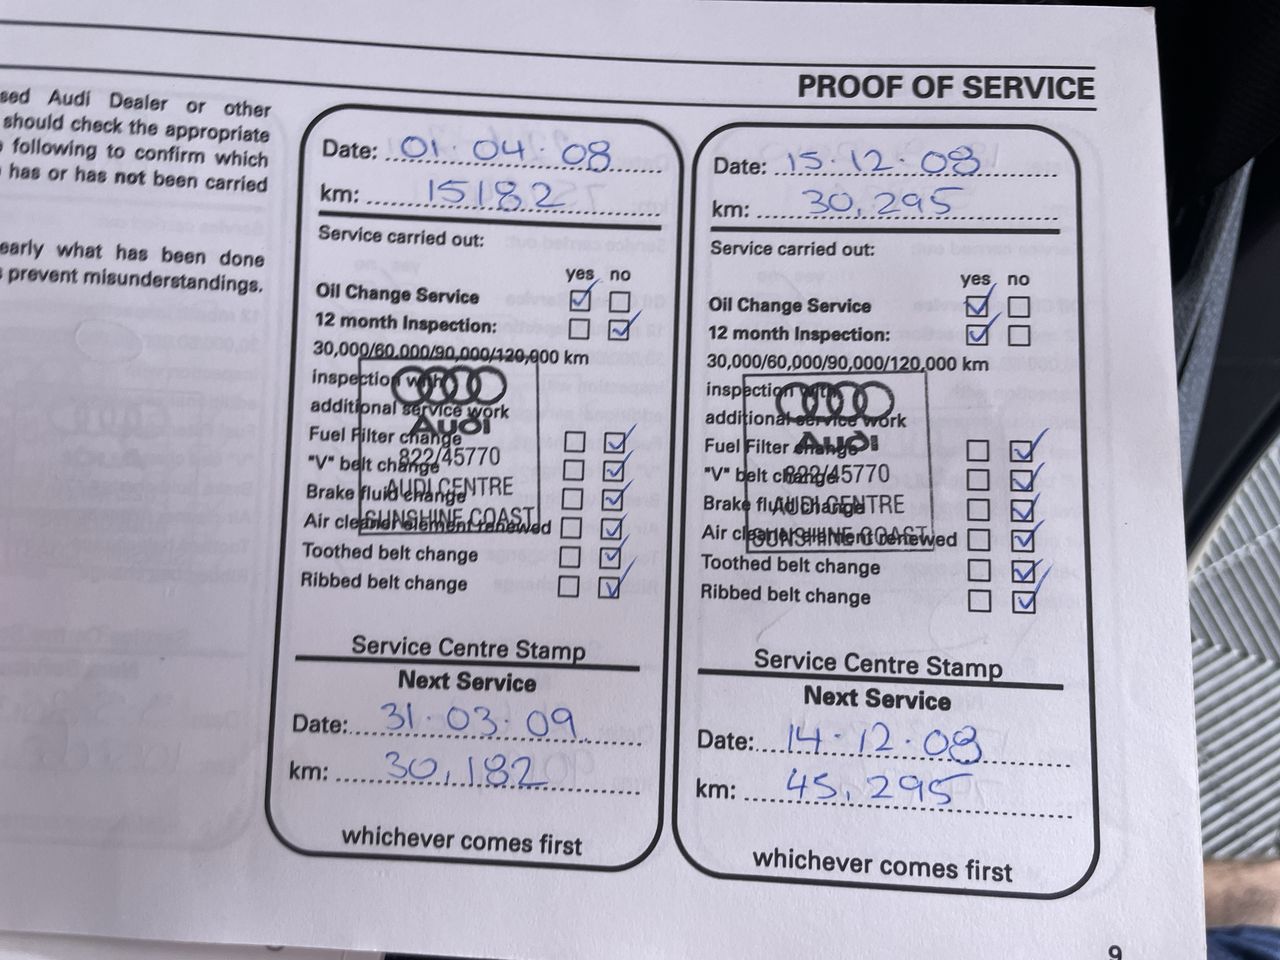 PROOF OF SERVICE
sed Audi Dealer or other
should check the appropriate
following to confirm which
has or has not been carried
early what has been done
prevent misunderstandings.
Date: 01.04.08
km: 15182
Service carried out:
yes no
Oil Change Service
12 month Inspection:
30,000/60,000/90,000/120,000 km
inspection with
additional service work
Fuel Filter change
"V" belt change
Brake fluid change
Air cleaner element renewed
Toothed belt change
Ribbed belt change
Audi
822/45770
AUDI CENTRE
SUNSHINE COAST
Service Centre Stamp
Next Service
Date: 31.03.09
km: 30,182
whichever comes first
Date: 15.12.08
km: 30,295
Service carried out:
yes no
Oil Change Service
12 month Inspection:
30,000/60,000/90,000/120,000 km
inspection with
additional service work
Fuel Filter change
"V" belt change
Brake fluid change
Air cleaner element renewed
Toothed belt change
Ribbed belt change
Audi
822/45770
AUDI CENTRE
SUNSHINE COAST
Service Centre Stamp
Next Service
Date: 14.12.08
km: 45,295
whichever comes first
9